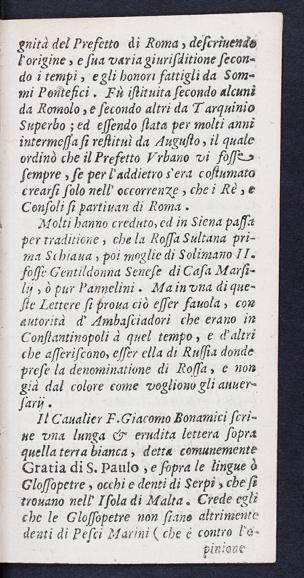 gnità del Prefetto di Roma, descriuendo
l'origine, e sua varia giurisditione secon-
do i tempi, e gli honori fattigli da Som-
mi Pontefici. Fù istituita secondo alcuni
da Romolo, e secondo altri da Tarquinio
Superbo; ed essendo stata per molti anni
intermessa si restituì da Augusto, il quale
ordinò che il Prefetto Vrbano vi fosse
sempre, se per l'addietro s'era costumato
crearsi solo nell' occorrenze, che i Rè, e
Consoli si partiuan di Roma.
Molti hanno creduto, ed in Siena passa
per traditione, che la Rossa Sultana pri-
ma Schiaua, poi moglie di Solimano II.
fosse Gentildonna Senese di Casa Marsi-
lij, ò pur Pannelini. Ma in vna di que-
ste Lettere si proua ciò esser fauola, con
autorità d' Ambasciadori che erano in
Constantinopoli à quel tempo, e d'altri
che asseriscono, esser ella di Russia donde
prese la denominatione di Rossa, e non
già dal colore come vogliono gli auuer-
sarij.
Il Caualier F. Giacomo Bonamici scri-
ue vna lunga & erudita lettera sopra
quella terra bianca, detta comunemente
Gratia di S. Paulo, e sopra le lingue ò
Glossopetre, occhi e denti di Serpi, che si
trouano nell' Isola di Malta. Crede egli
che le Glossopetre non siano altrimente
denti di Pesci Marini (che è contro l'o-
pinione